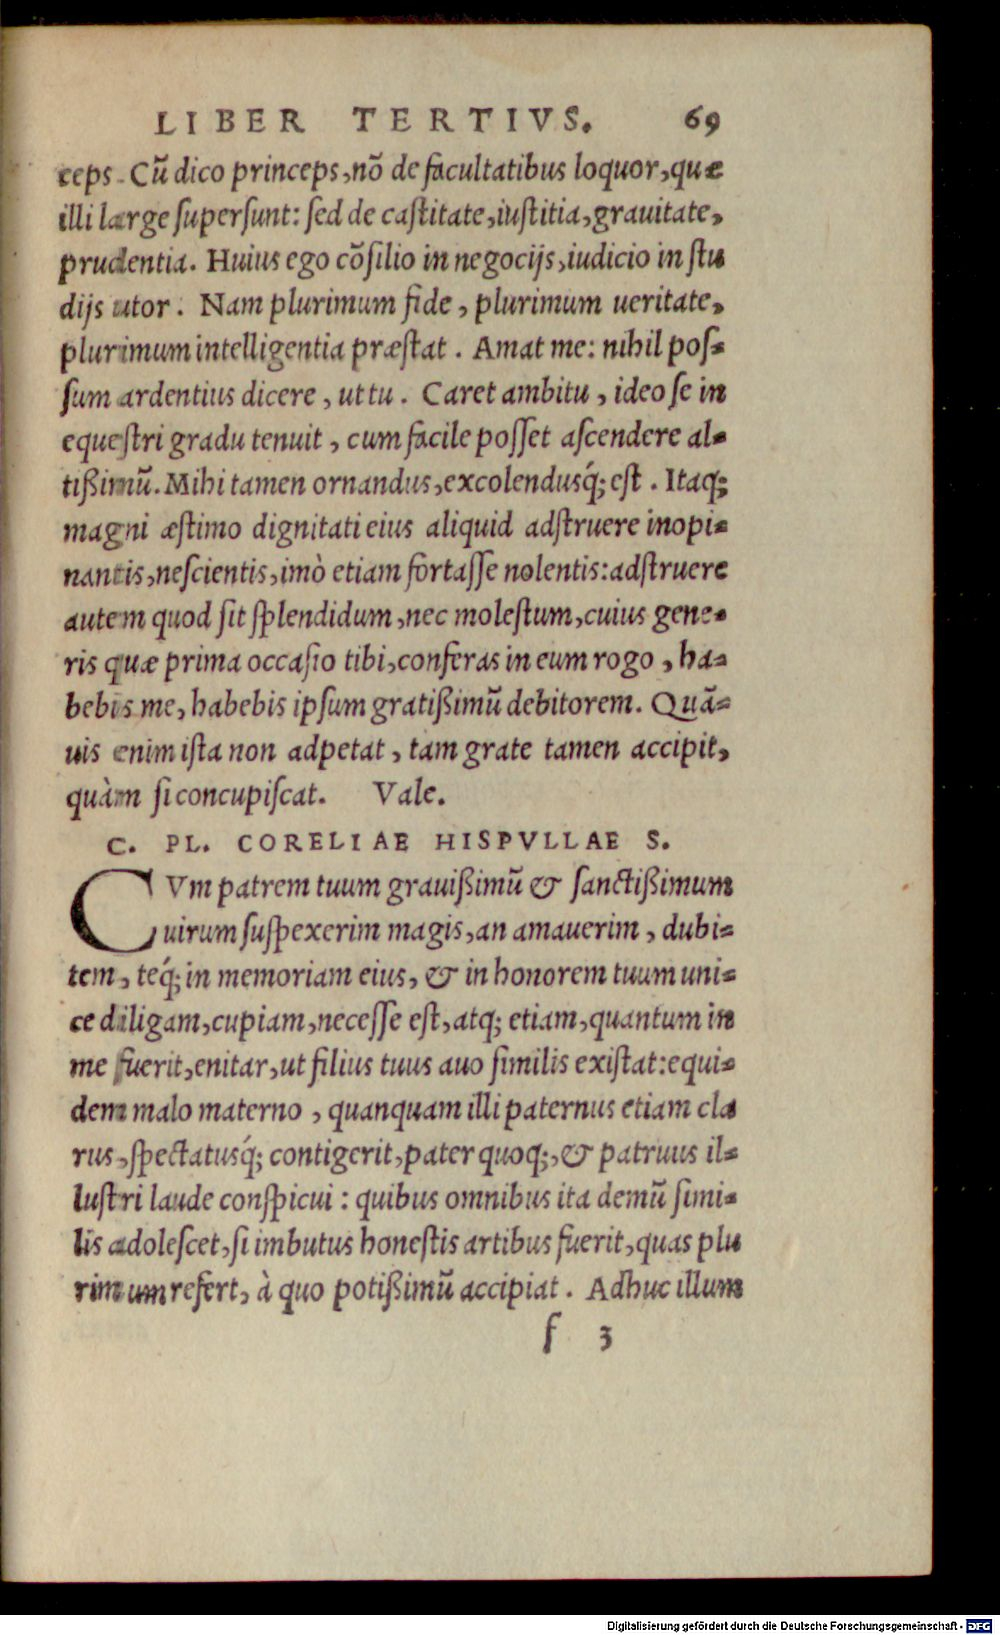 LIBER TERTIVS. 69
ceps. Cũ dico princeps, nõ de facultatibus loquor, quæ
illi large ſuperſunt: ſed de caſtitate, iuſtitia, grauitate,
prudentia. Huius ego cõſilio in negocijs, iudicio in ſtu
dijs utor. Nam plurimum fide, plurimum ueritate,
plurimum intelligentia præſtat. Amat me: nihil poſ-
ſum ardentius dicere, ut tu. Caret ambitu, ideo ſe in
equeſtri gradu tenuit, cum facile poſſet aſcendere al-
tißimũ. Mihi tamen ornandus, excolendusq́; eſt. Itaq;
magni æſtimo dignitati eius aliquid adſtruere inopi-
nantis, neſcientis, imò etiam fortaſſe nolentis: adſtruere
autem quod ſit ſplendidum, nec moleſtum, cuius gene-
ris quæ prima occaſio tibi, conferas in eum rogo, ha-
bebis me, habebis ipſum gratißimũ debitorem. Quã-
uis enim iſta non adpetat, tam grate tamen accipit,
quàm ſi concupiſcat. Vale.
C. PL. CORELIAE HISPVLLAE S.
CVm patrem tuum grauißimũ & ſanctißimum
uirum ſuſpexerim magis, an amauerim, dubi-
tem, teq́; in memoriam eius, & in honorem tuum uni-
ce diligam, cupiam, neceſſe eſt, atq; etiam, quantum in
me fuerit, enitar, ut filius tuus auo ſimilis exiſtat: equi-
dem malo materno, quanquam illi paternus etiam cla
rus, ſpectatusq́; contigerit, pater quoq;, & patruus il-
luſtri laude conſpicui: quibus omnibus ita demũ ſimi-
lis adoleſcet, ſi imbutus honeſtis artibus fuerit, quas plu
rimum refert, à quo potißimũ accipiat. Adhuc illum
f 3
Digitalisierung gefördert durch die Deutsche Forschungsgemeinschaft - DFG